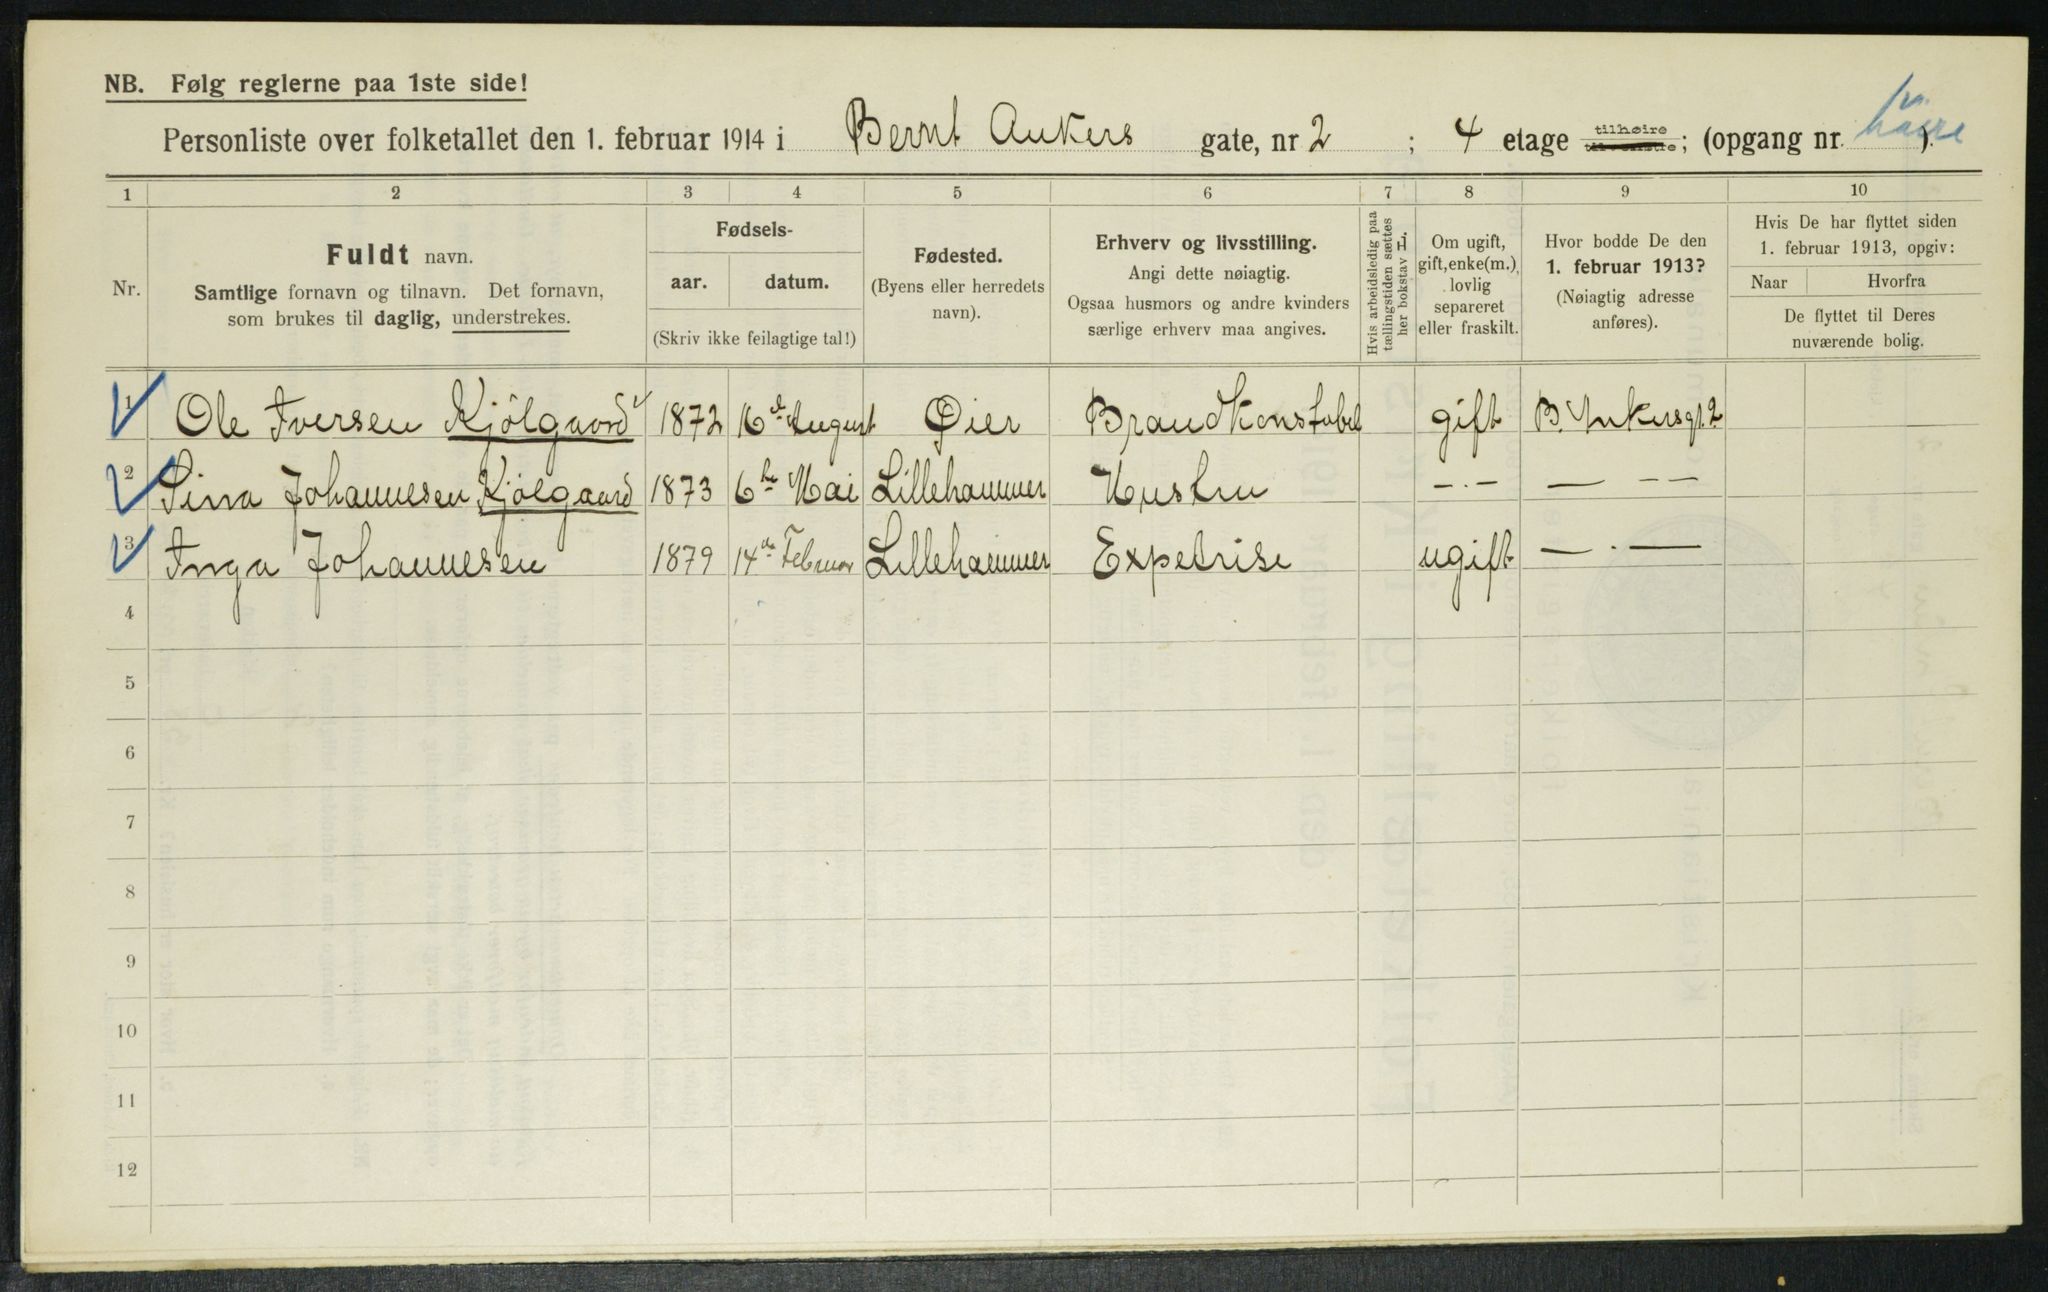 NB. Følg reglerne paa 1ste side!
Personliste over folketallet den 1. februar 1914 i Bernt Ankers gate, nr 2 ; 4 etage tilhøire ; (opgang nr. ).
1 2 3 4 5 6 7 8 9 10
Nr.
Fuldt navn.
Samtlige fornavn og tilnavn. Det fornavn,
som brukes til daglig, understrekes.
Fødsels-
aar. datum.
(Skriv ikke feilagtige tal!)
Fødested.
(Byens eller herredets
navn).
Erhverv og livsstilling.
Angi dette nøiagtig.
Ogsaa husmors og andre kvinders
særlige erhverv maa angives.
Hvis arbeidsledig paa
tællingstiden sættes
her bokstav L.
Om ugift,
gift, enke(m.),
lovlig
separeret
eller fraskilt.
Hvor bodde De den
1. februar 1913?
(Nøiagtig adresse
anføres).
Hvis De har flyttet siden
1. februar 1913, opgiv:
Naar Hvorfra
De flyttet til Deres
nuværende bolig.
1 Ole Iversen Kjölgaard 1872 16d August Øier Brandkonstabel gift B. Ankersgt. 2
2 Sina Johannesen Kjölgaard 1873 6te Mai Lillehammer Hustru -·- — - -
3 Inga Johannesen 1879 14de Februar Lillehammer Expedrise ugift — · —
4
5
6
7
8
9
10
11
12